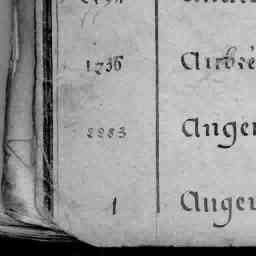 1236 Aubré
2283 Anger
1 Anger